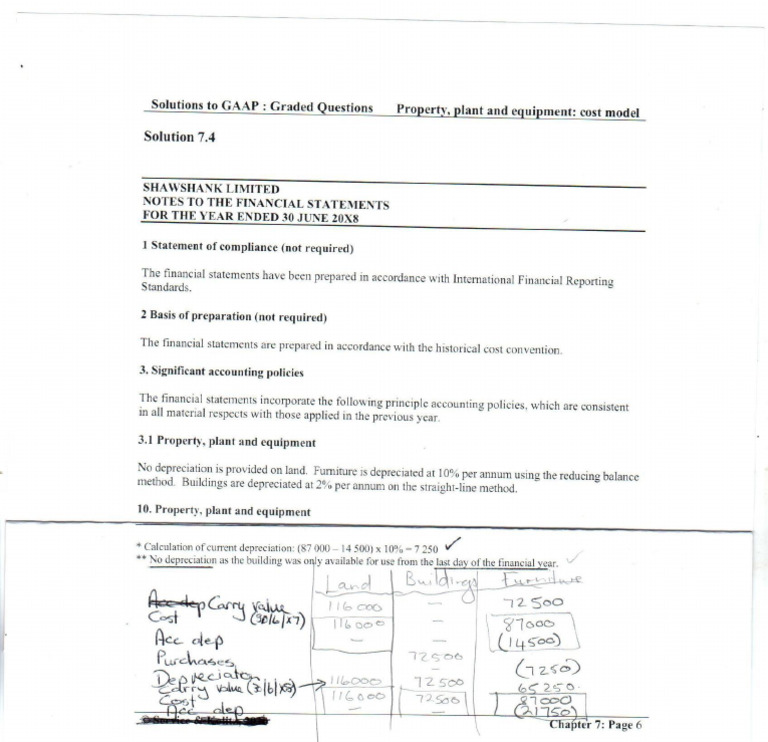 Solutions to GAAP : Graded Questions Property, plant and equipment: cost model
Solution 7.4
SHAWSHANK LIMITED
NOTES TO THE FINANCIAL STATEMENTS
FOR THE YEAR ENDED 30 JUNE 20X8
1 Statement of compliance (not required)
The financial statements have been prepared in accordance with International Financial Reporting
Standards.
2 Basis of preparation (not required)
The financial statements are prepared in accordance with the historical cost convention.
3. Significant accounting policies
The financial statements incorporate the following principle accounting policies, which are consistent
in all material respects with those applied in the previous year.
3.1 Property, plant and equipment
No depreciation is provided on land. Furniture is depreciated at 10% per annum using the reducing balance
method. Buildings are depreciated at 2% per annum on the straight-line method.
10. Property, plant and equipment
* Calculation of current depreciation: (87 000 – 14 500) x 10% = 7 250
** No depreciation as the building was only available for use from the last day of the financial year.
Land Buildings Furniture
Acc dep Carry value (30/6/x7) 116 000 – 72 500
Cost 116 000 – 87000
Acc dep – – (14500)
Purchases 72500
Depreciation – (7250)
Carry value (30/6/x8) 116000 72500 65 250
Cost 116000 72500 87000
Acc dep – – (21750)
Chapter 7: Page 6